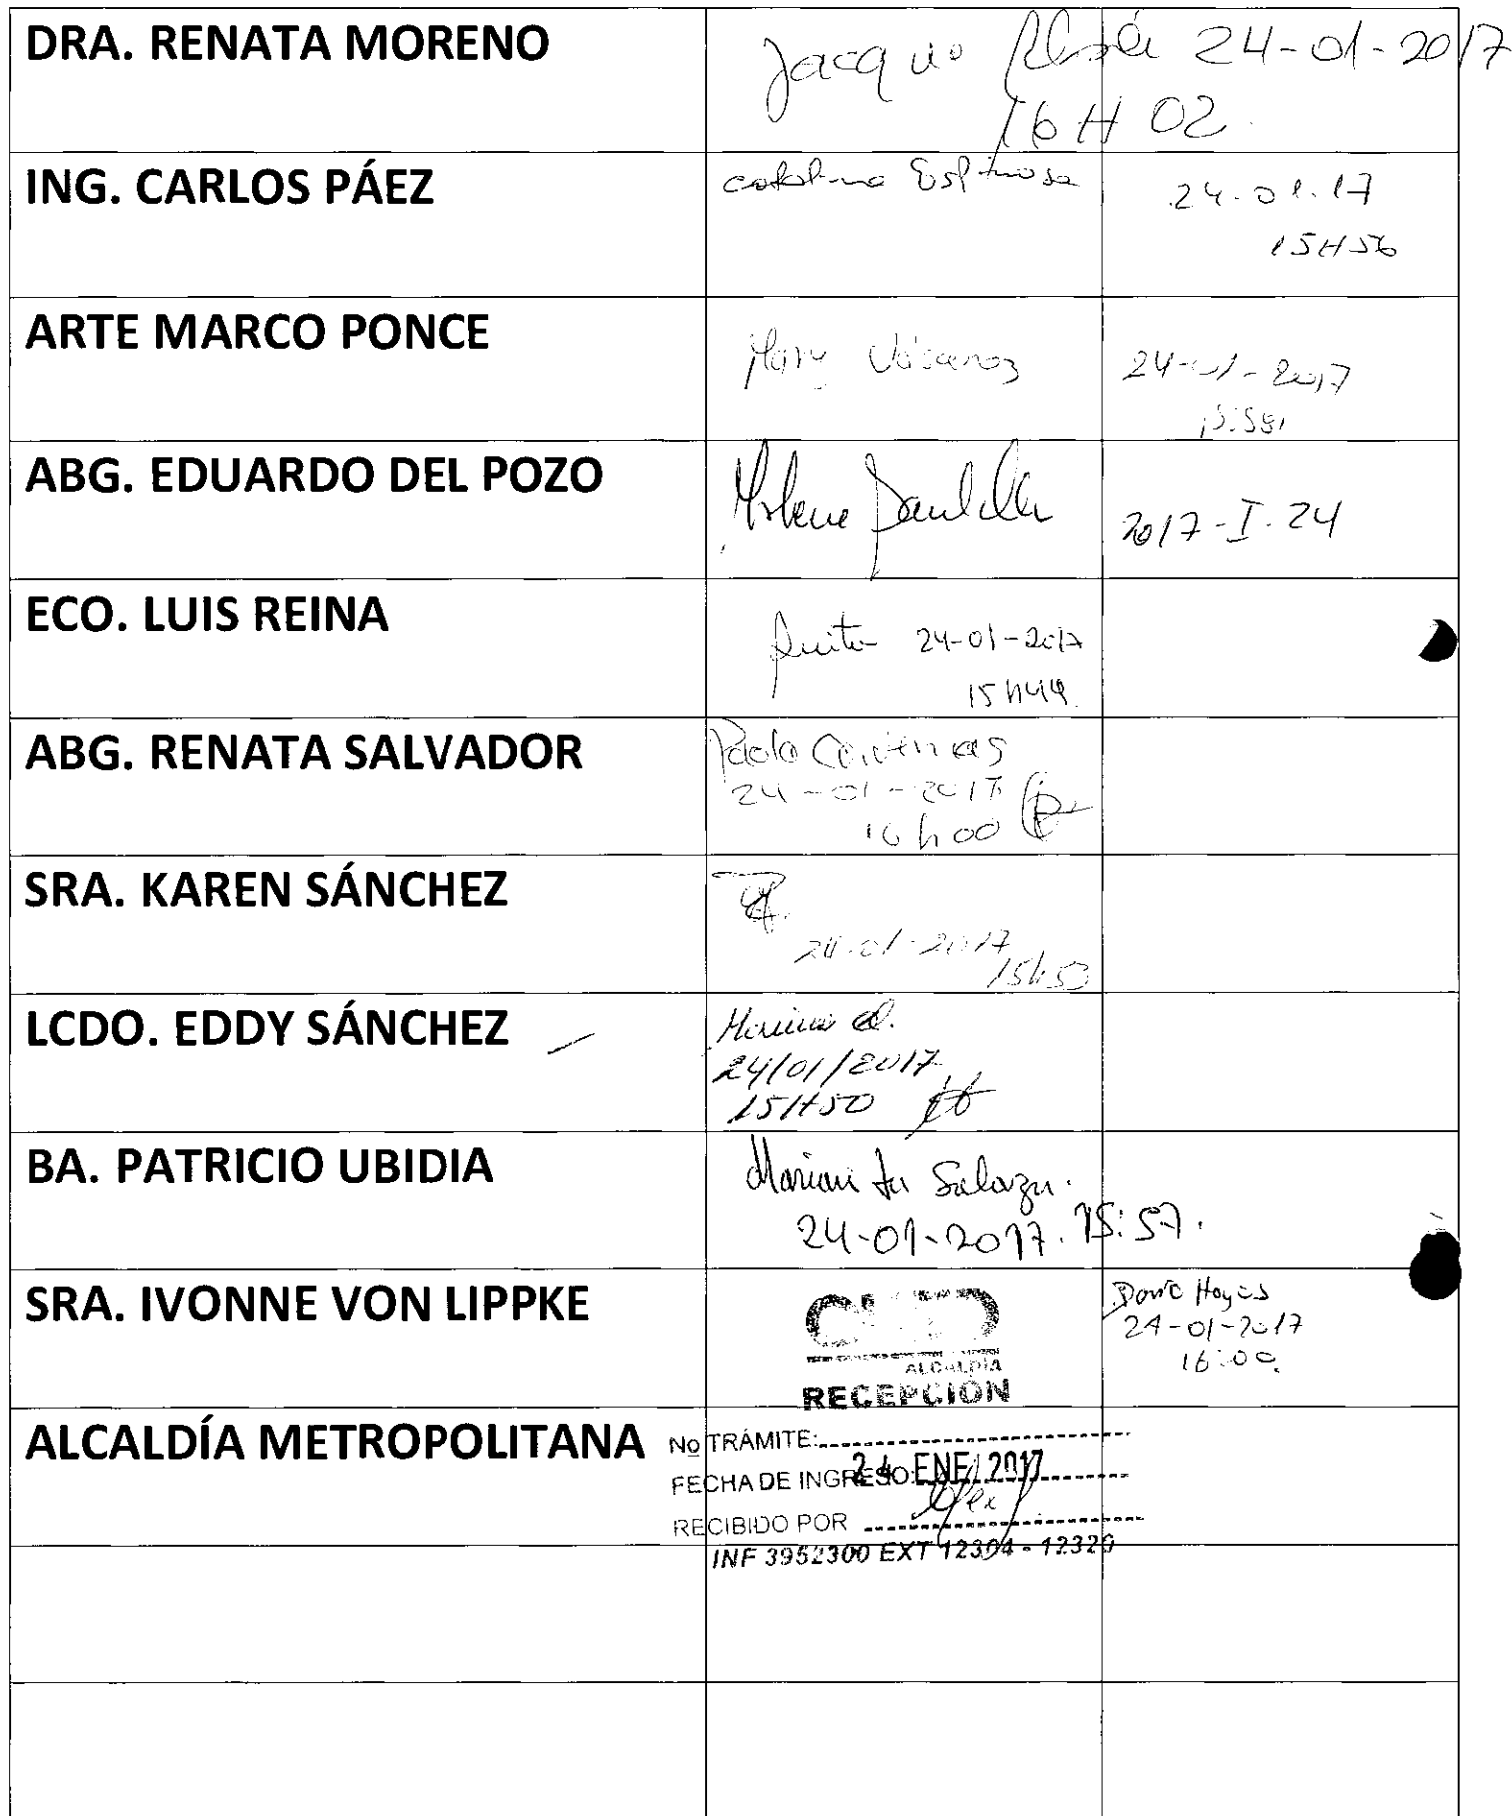 DRA. RENATA MORENO
24-01-2017
16H02
ING. CARLOS PÁEZ
Catalina Espinosa
24.01.17
15H56
ARTE MARCO PONCE
Mary
24-01-2017
15:58
ABG. EDUARDO DEL POZO
2017-I-24
ECO. LUIS REINA
24-01-2017
15h49
ABG. RENATA SALVADOR
24-01-2017
16h00
SRA. KAREN SÁNCHEZ
24-01-2017
15h53
LCDO. EDDY SÁNCHEZ
24/01/2017
15H50
BA. PATRICIO UBIDIA
Marianita Salazar.
24-01-2017. 15:57.
SRA. IVONNE VON LIPPKE
ALCALDÍA
RECEPCIÓN
24-01-2017
16:00
ALCALDÍA METROPOLITANA
No TRÁMITE:
FECHA DE INGRESO: 24 ENE 2017
RECIBIDO POR
INF 3952300 EXT 12304 - 12320